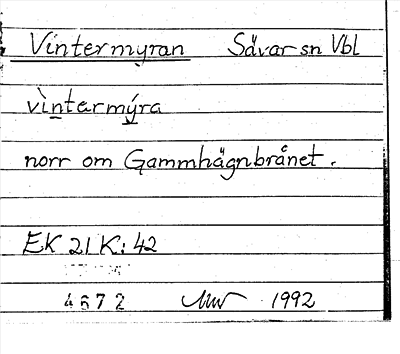 Vintermyran Sävar sn Vbl
vìntermýra
norr om Gammhägnbrånet.
EK 21 K: 42
4672 1992